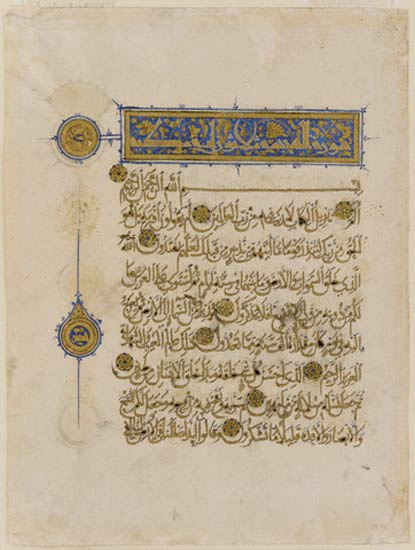 بسم الله الرحمن الرحيم
الم تنزيل الكتاب لا ريب فيه من رب العالمين أم يقولون افتريه بل هو
الحق من ربك لتنذر قوما ما أتيهم من نذير من قبلك لعلهم يهتدون الله
الذي خلق السموات والأرض وما بينهما في ستة أيام ثم استوى على العرش ما
لكم من دونه من ولي ولا شفيع أفلا تتذكرون يدبر الأمر من السماء إلى الأرض ثم يعرج
إليه في يوم كان مقداره ألف سنة مما تعدون ذلك عالم الغيب والشهادة
العزيز الرحيم الذي أحسن كل شيء خلقه وبدأ خلق الإنسان من طين
ثم جعل نسله من سلالة من ماء مهين ثم سويه ونفخ فيه من روحه وجعل لكم السمع
والأبصار والأفئدة قليلا ما تشكرون وقالوا أئذا ضللنا في الأرض